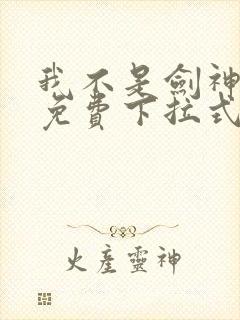 我不是劍神
免費下拉式
火產靈神